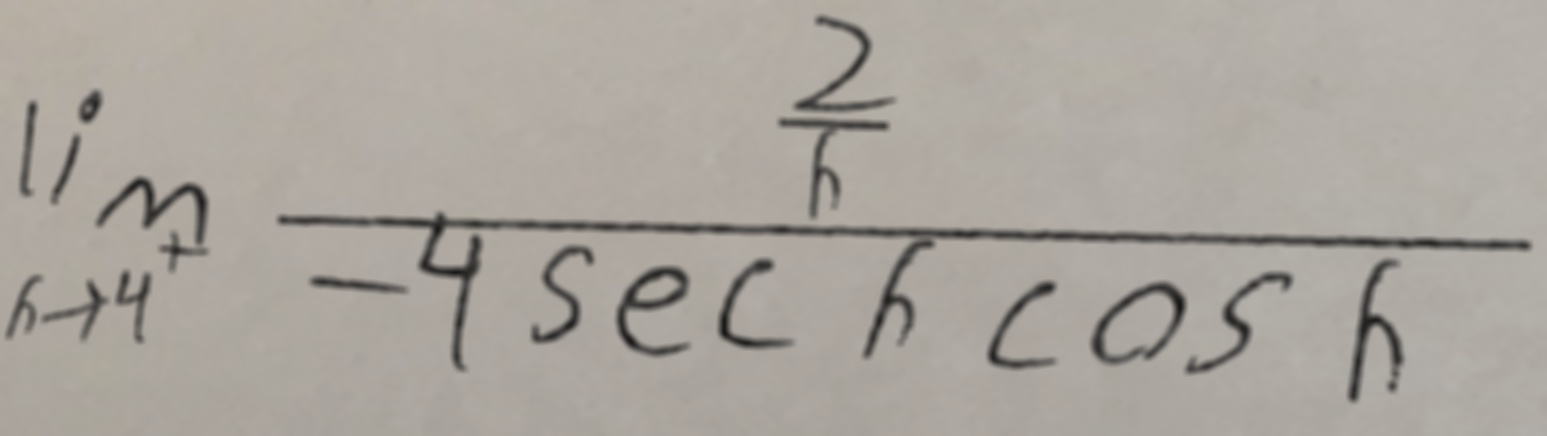 \lim_{h \to 4^{+}} \frac{\frac{2}{h}}{-4 \sec h \cos h}